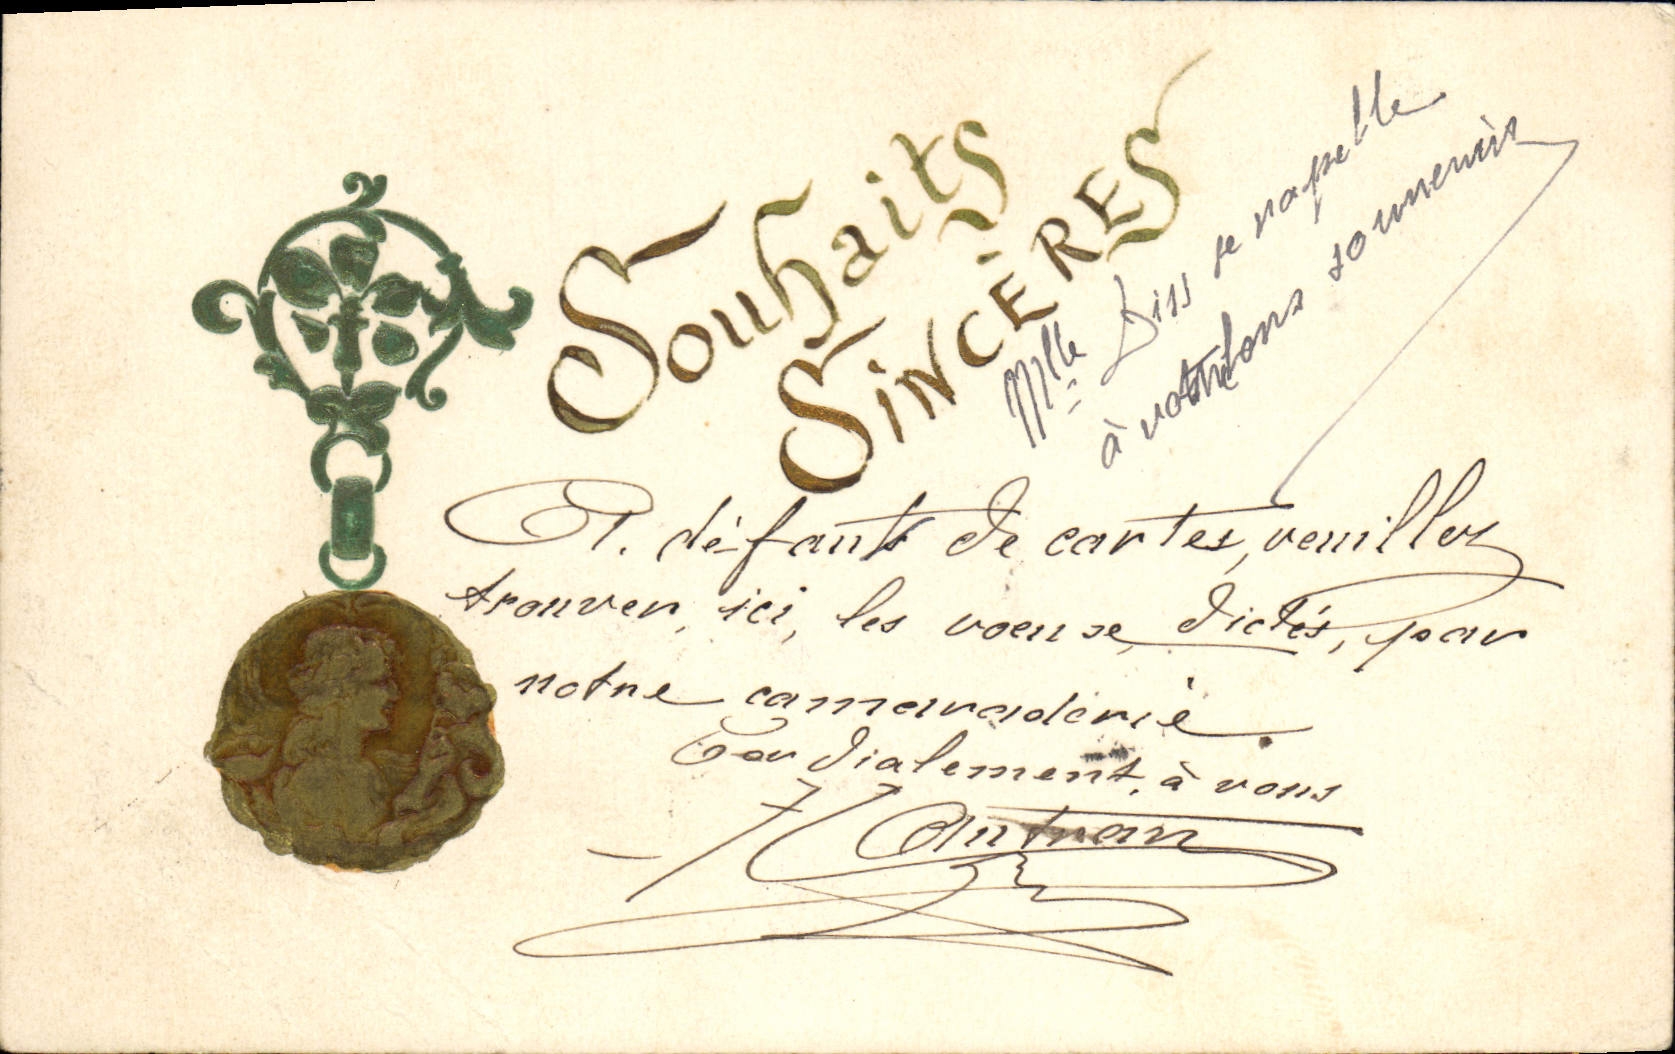 Souhaits
SINCÈRES
Mlle Diss se rapelle
à votre bons souvenirs
A. défaut de cartes, veuillez
trouver, ici, les voeuxe, dictés, par
notre camaraderie.
Cordialement, à vous
Autran